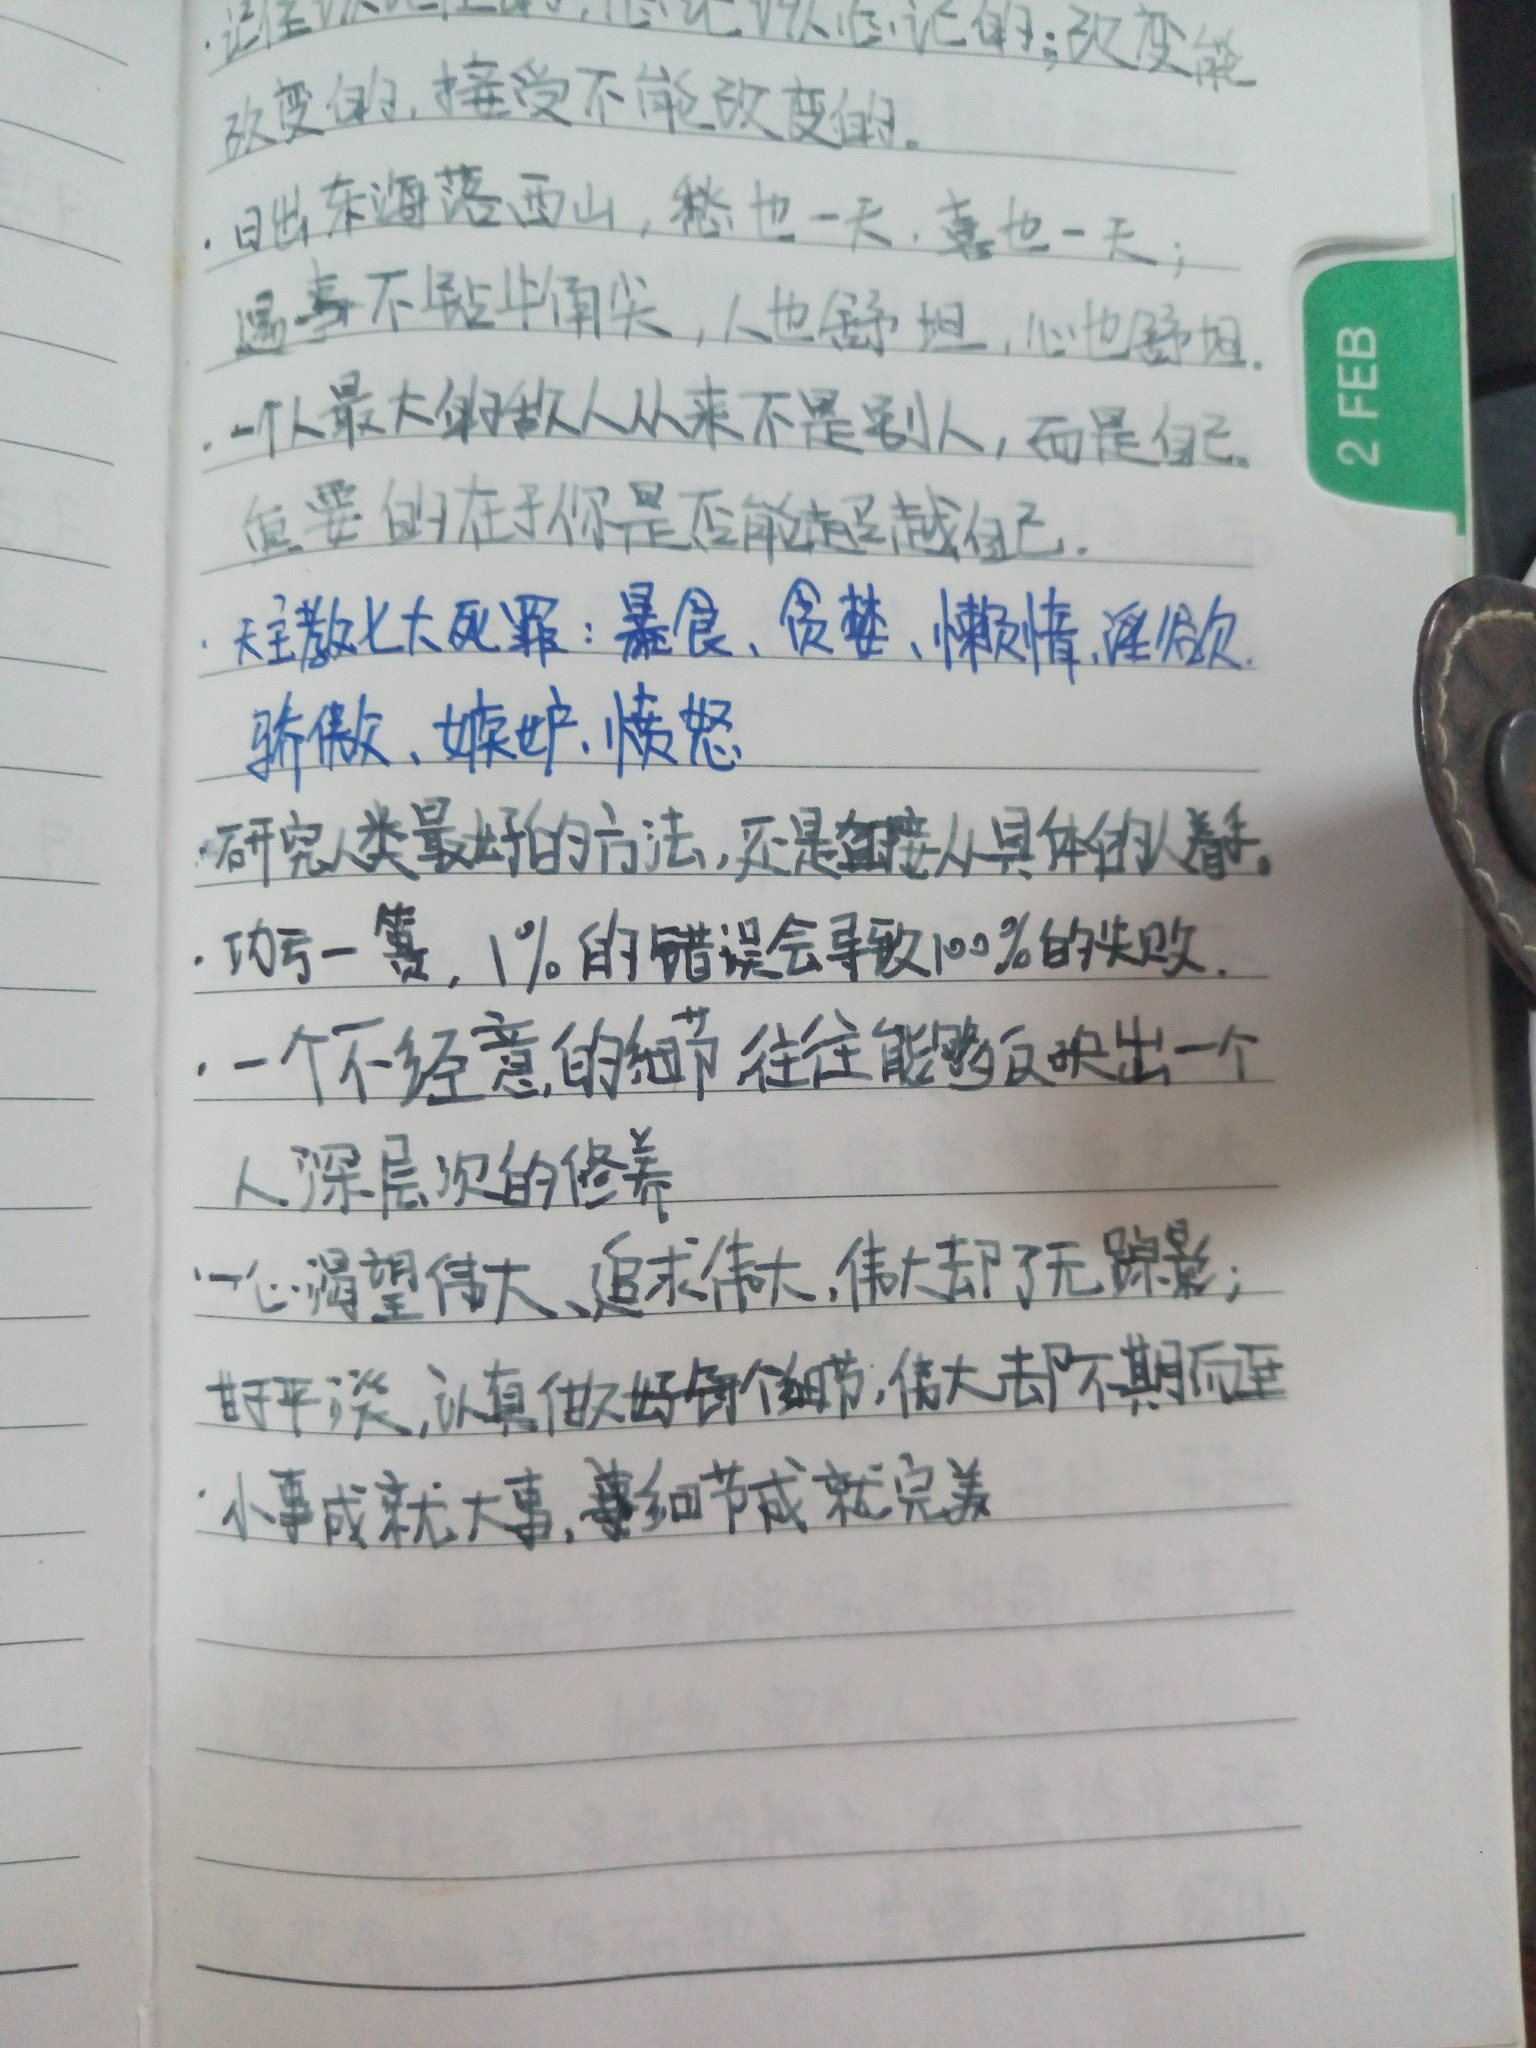 ·记住该记住的,忘记该忘记的;改变能
改变的,接受不能改变的。
·日出东海落西山,愁也一天,喜也一天;
遇事不钻牛角尖,人也舒坦,心也舒坦.
·一个人最大的敌人从来不是别人,而是自己。
重要的在于你是否能超越自己.
·天主教七大死罪:暴食、贪婪、懒惰、淫欲.
骄傲、嫉妒、愤怒
·研究人类最好的方法,还是直接从具体的人着手。
·功亏一篑,1%的错误会导致100%的失败.
·一个不经意的细节,往往能够反映出一个
人深层次的修养
·一心渴望伟大、追求伟大,伟大却了无踪影;
甘于平淡,认真做好每个细节,伟大却不期而至
·小事成就大事,细节成就完美
2 FEB